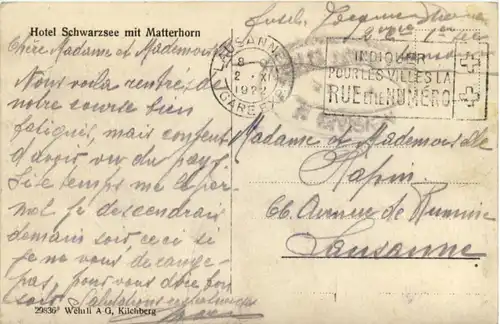 Hotel Schwarzsee mit Matterhorn
Chère Madame et Mademoiselle
Nous voilà rentrés de
notre course bien
fatigués, mais content
d'avoir vu du pays.
Si le temps me le per-
met je descendrai
demain soir, ceci si
je ne vous dérange
pas, pour vous dire bon
soir. Salutations
29836 Wehrli A G, Kilchberg
LAUSANNE
2 XI
1922
GARE EXP
INDIQUER
POUR LES VILLES LA
RUE et le NUMÉRO
Madame et Mademoiselle
66. Avenue de Rumine
Lausanne